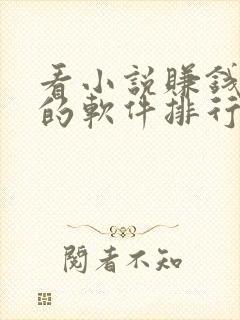 看小說賺錢
的軟件排行
閱者不知